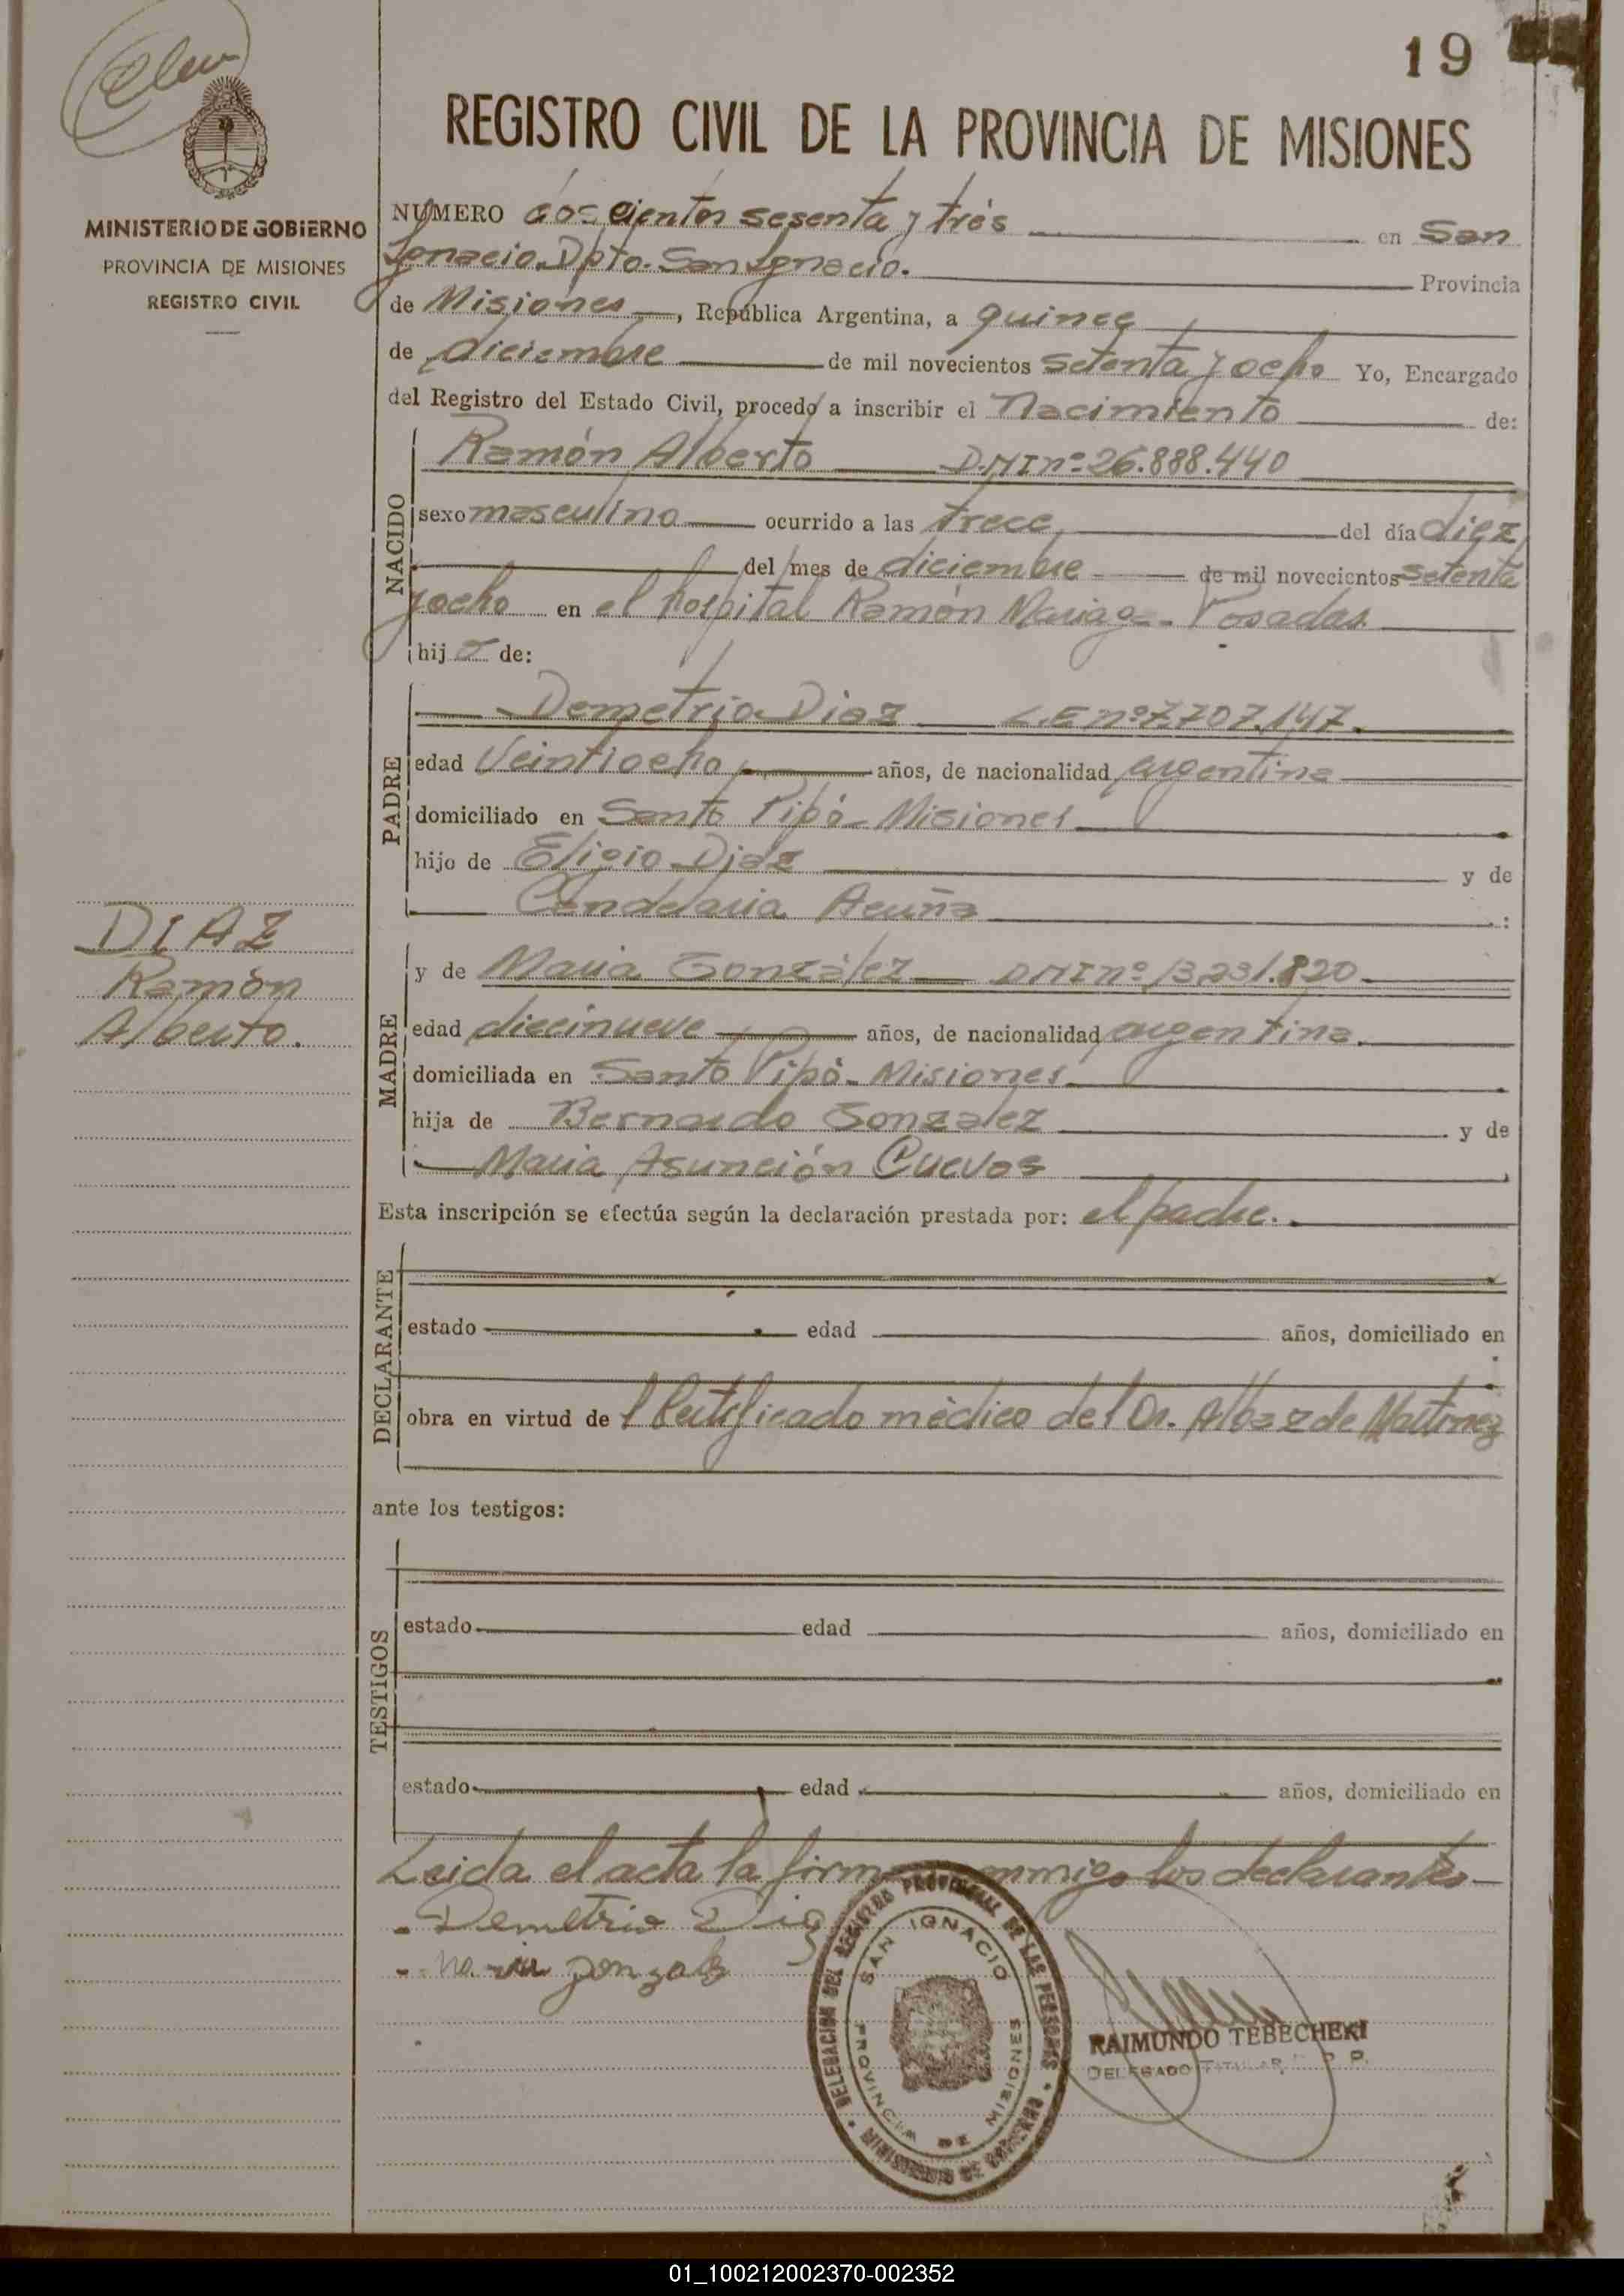 19
REGISTRO CIVIL DE LA PROVINCIA DE MISIONES
MINISTERIO DE GOBIERNO
PROVINCIA DE MISIONES
REGISTRO CIVIL
NUMERO doscientos sesenta y trés en San
Ignacio. Dpto. San Ignacio. Provincia
de Misiones, República Argentina, a quince
de diciembre de mil novecientos setenta y ocho Yo, Encargado
del Registro del Estado Civil, procedo a inscribir el Nacimiento de:
NACIDO
Ramón Alberto D.N.I nº 26.888.440
sexo masculino ocurrido a las trece del día diez
del mes de diciembre de mil novecientos setenta
y ocho en el hospital Ramón Madariaga - Posadas.
hijo de:
PADRE
Demetrio Diaz L.E nº 7.707.147.
edad Veintiocho años, de nacionalidad argentina
domiciliado en Santo Pipó - Misiones
hijo de Eligio Diaz y de
Candelaria Acuña
DIAZ
Ramón
Alberto.
MADRE
y de Maria González DNI nº 13.231.820
edad diecinueve años, de nacionalidad argentina.
domiciliada en Santo Pipó - Misiones
hija de Bernardo Gonzalez y de
Maria Asunción Cuevas
Esta inscripción se efectúa según la declaración prestada por: el padre.
DECLARANTE
estado edad años, domiciliado en
obra en virtud del Certificado médico del Dr. de Martinez
ante los testigos:
TESTIGOS
estado edad años, domiciliado en
estado edad años, domiciliado en
Leida el acta la firman conmigo los declarantes
Demetrio Diaz
Maria gonzalez
DELEGACION DEL REGISTRO PROVINCIAL DE LAS PERSONAS
SAN IGNACIO
PROVINCIA DE MISIONES
MINISTERIO DE GOBIERNO
RAIMUNDO TEBECHEKI
DELEGADO TITULAR R. P. P.
01_100212002370-002352